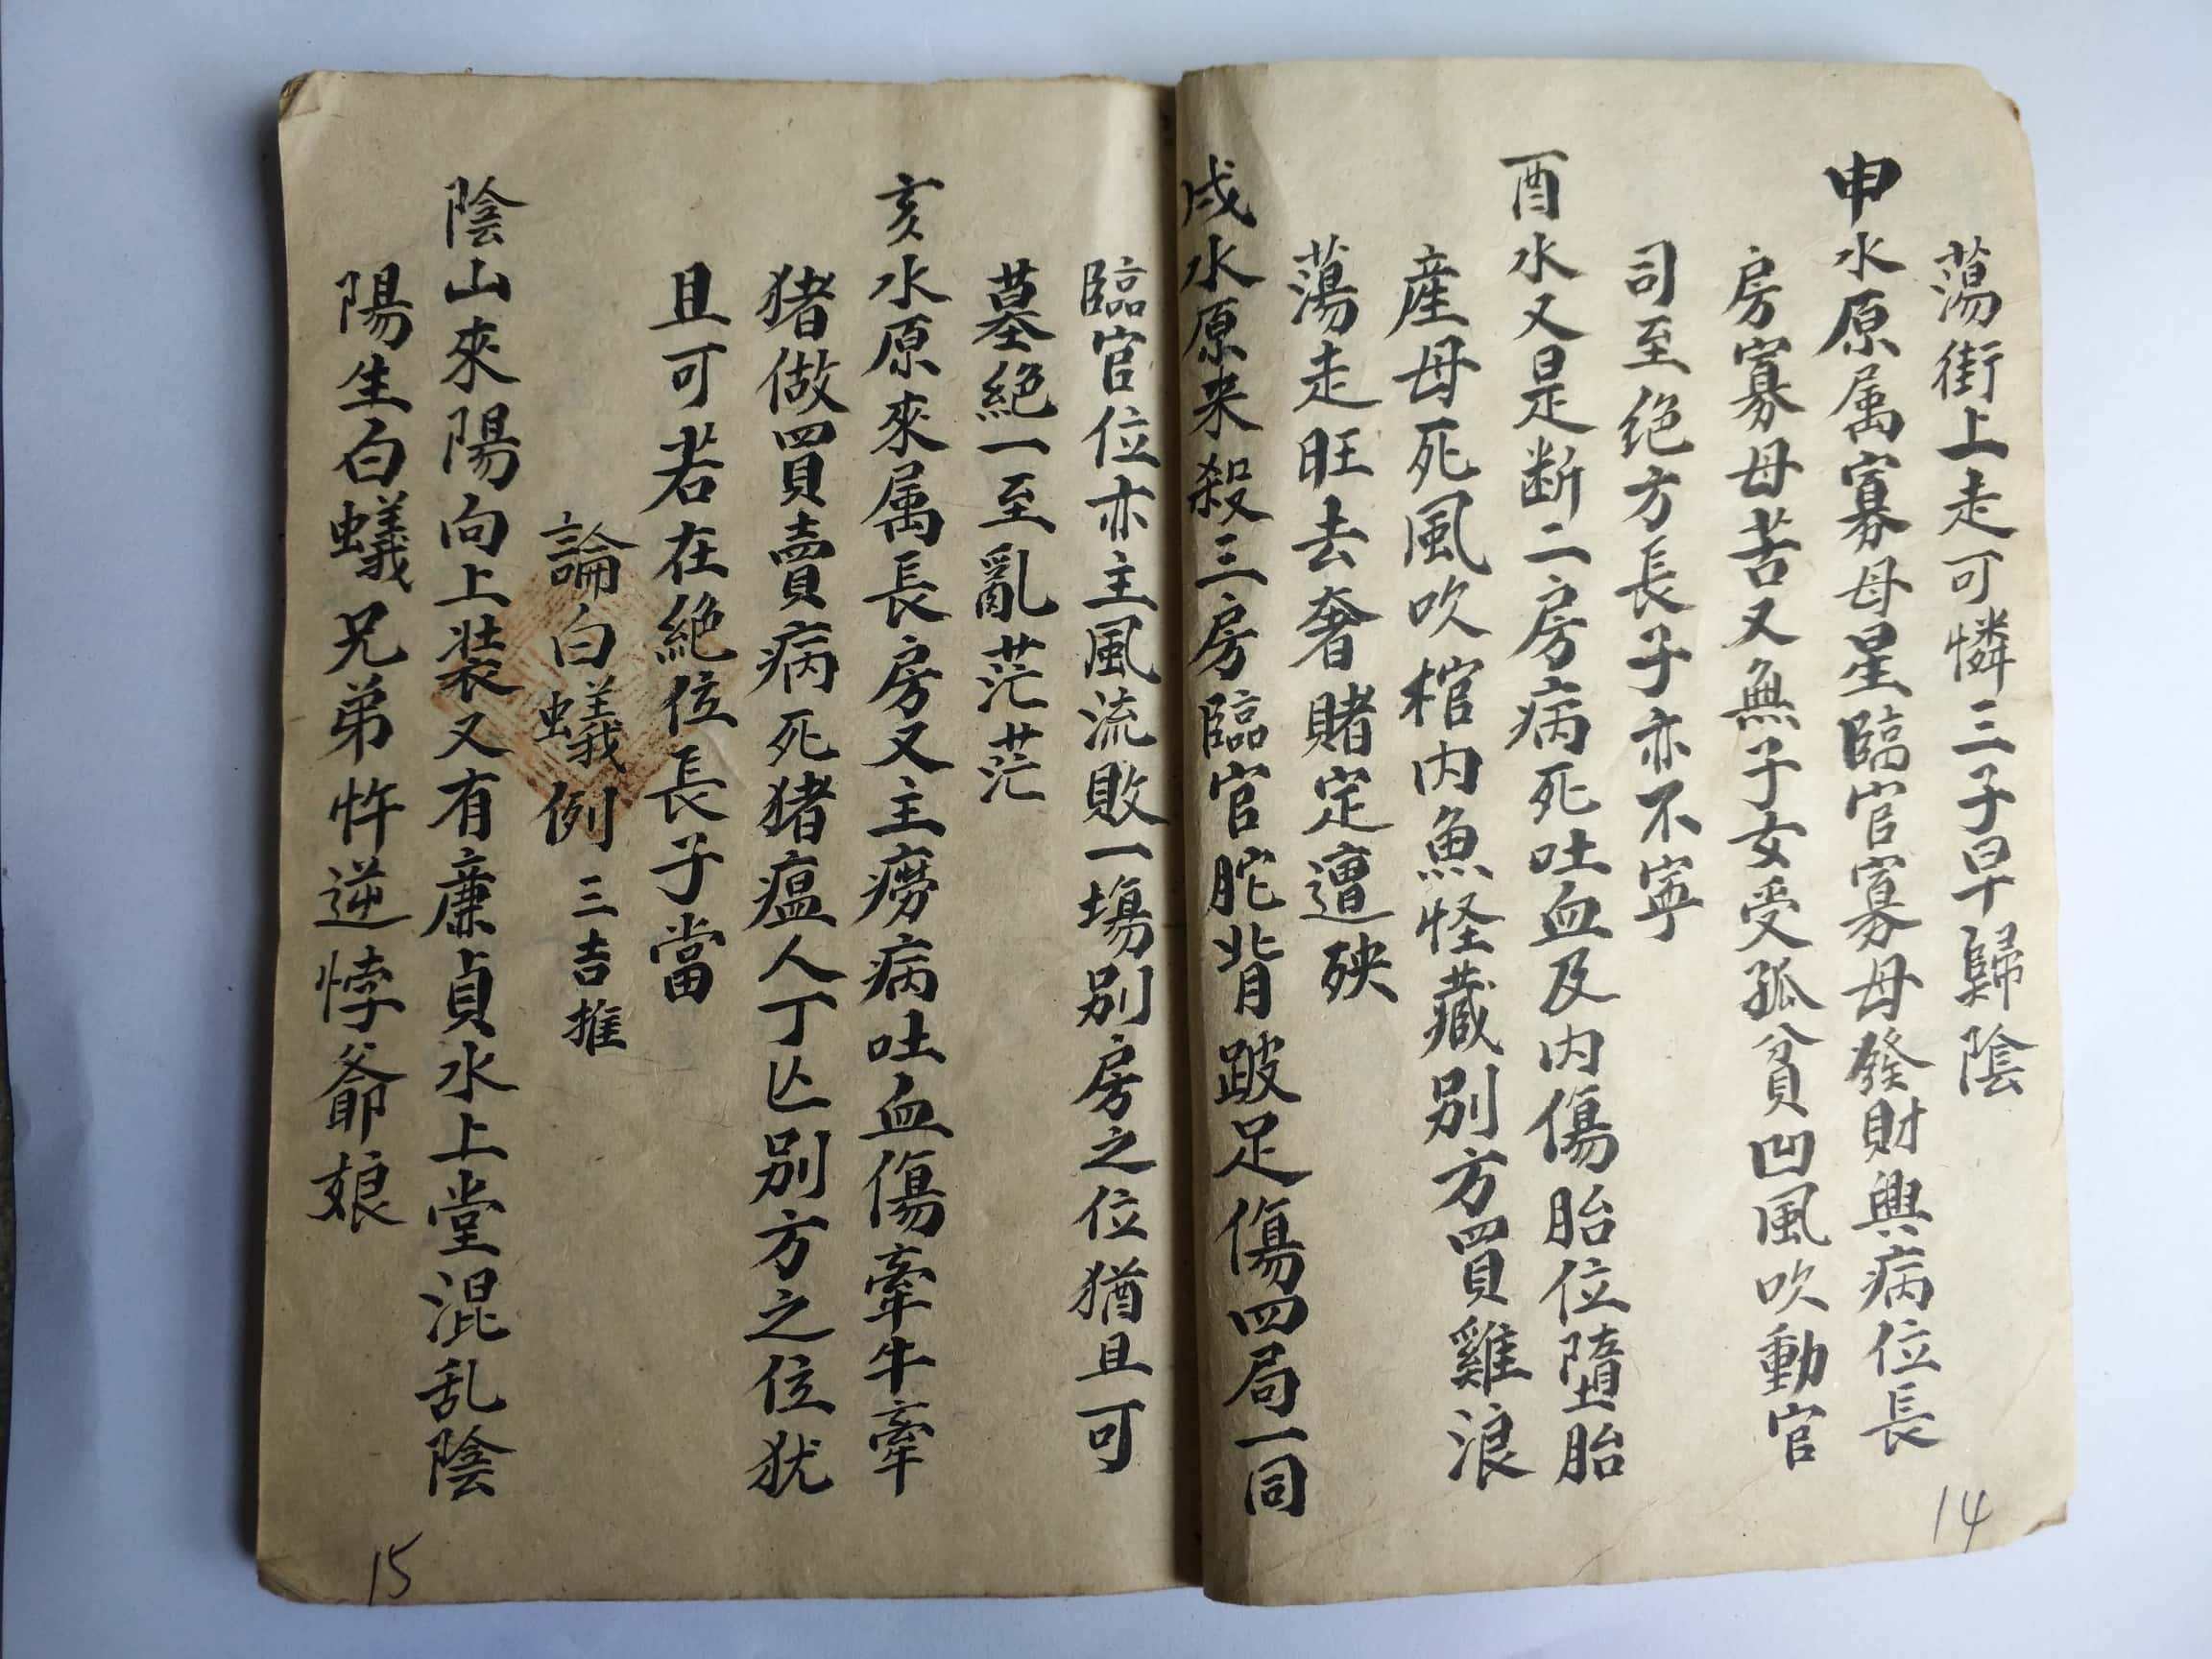 蕩街上走可憐三子早歸陰
申水原属寡母星臨官寡母發財興病位長
房寡母苦又無子女受孤貧凹風吹動官
司至绝方長子亦不寧
酉水又是断二房病死吐血及内傷胎位墮胎
産母死風吹棺内魚怪藏别方買雞浪
蕩走旺去奢賭定遭殃
戌水原来殺三房臨官駝背跛足傷四局一同
臨官位亦主風流敗一塲别房之位猶且可
墓絶一至亂茫茫
亥水原來属長房又主癆病吐血傷牽牛牽
猪做買賣病死猪瘟人丁亡别方之位犹
且可若在絶位長子當
論白蟻例 三吉推
陰山來陽向上装又有廉貞水上堂混乱陰
陽生白蟻兄弟忤逆悖爺娘
14
15